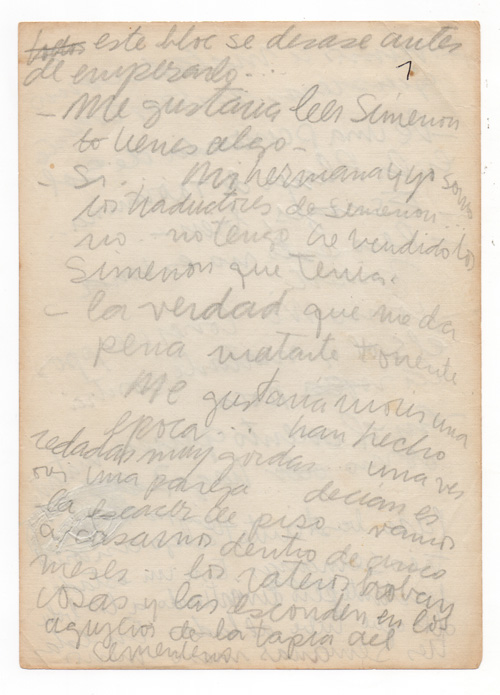 este bloc se desase antes
de empezarlo...
- Me gustaria leer Simenon
tu tienes algo -
- Si. Mi hermana y yo somos
los traductores de Simenon..
no - no tengo he vendido los
Simenon que tenia.
- la verdad que me da
pena matarte
Me gustaria una
epoca... han hecho
redadas muy gordas una vez
oi una pareja decian es
la escacez de piso vamos
a casarnos dentro de cinco
meses.. los rateros roban
cosas y las esconden en los
agujeros de la tapia del
cementerio